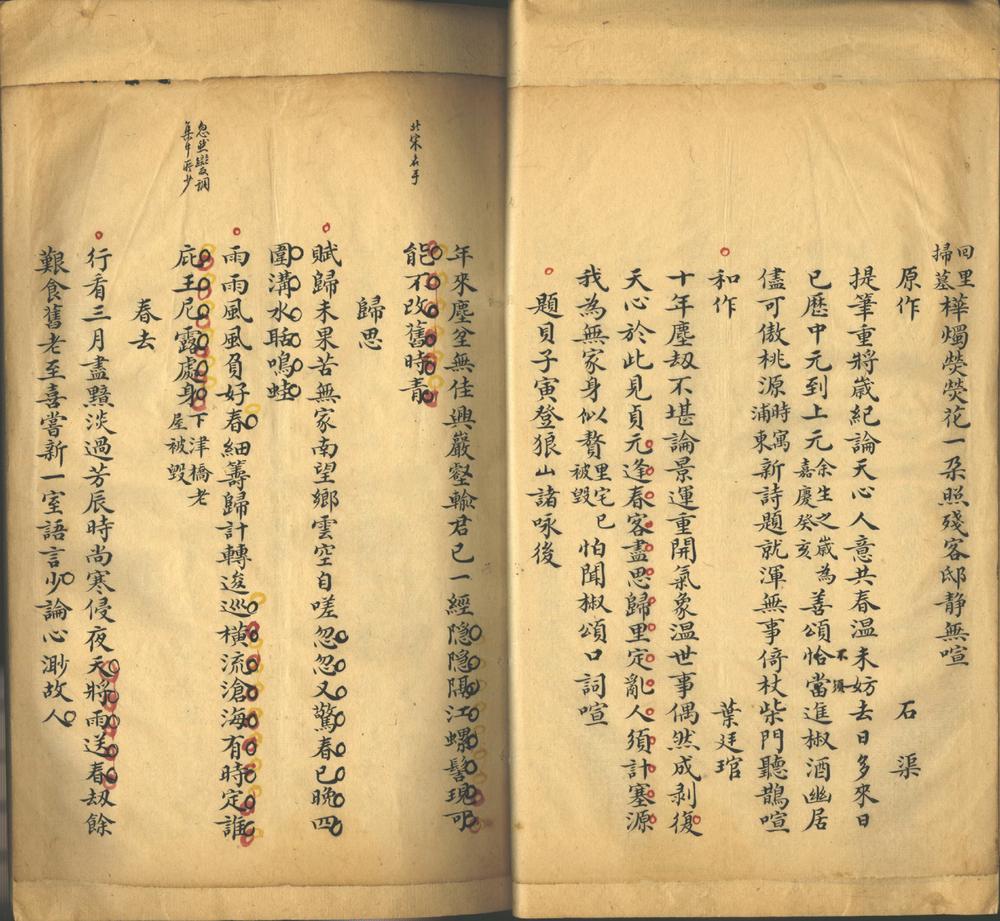 回里
掃墓樺燭熒熒花一朶照殘客邸靜無喧
原作 石渠
提筆重將歲紀論天心人意共春温未妨去日多來日
已歷中元到上元余生之歲為嘉慶癸亥善頌恰當進椒酒幽居
不須
儘可傲桃源時寓浦東新詩題就渾無事倚杖柴門聽鵲喧
和作 葉廷琯
十年塵刼不堪論景運重開氣象温世事偶然成剥復
天心於此見貞元逢春客盡思歸里定亂人須計塞源
我為無家身似贅里宅已被毀怕聞椒頌口詞喧
題貝子寅登狼山諸咏後
年來塵坌無佳興巖壑輸君已一經隱隱隔江螺髻現可
能不改舊時青
北宋名手
歸思
賦歸未果苦無家南望鄉雲空自嗟忽忽又驚春已晚四
圍溝水聒鳴蛙
雨雨風風負好春細籌歸計轉逡巡橫流滄海有時定誰
庇王尼露處身下津橋老屋被毀
忽然變調
集中所少
春去
行看三月盡黯淡過芳辰時尚寒侵夜天將雨送春刼餘
艱食舊老至喜嘗新一室語言少論心渺故人